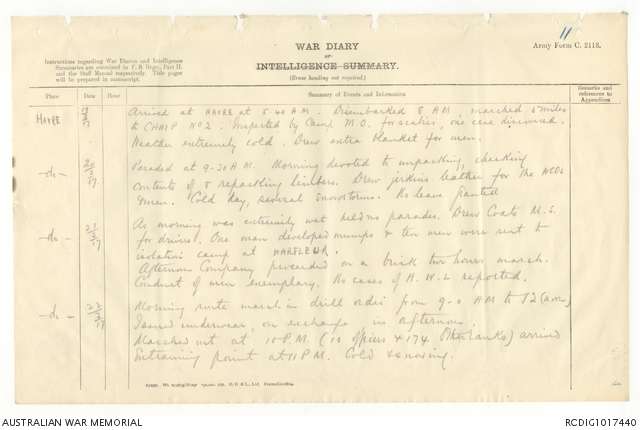 11
WAR DIARY
or
INTELLIGENCE SUMMARY.
(Erase heading not required.)
Army Form C. 2118.
Instructions regarding War Diaries and Intelligence
Summaries are contained in F. S. Regs., Part II.
and the Staff Manual respectively. Title pages
will be prepared in manuscript.
Place
Date
Hour
Summary of Events and Information
Remarks and
references to
Appendices
Arrived at HAVRE at 5.40 A.M. Disembarked 8 A.M. marched 5 miles
to CAMP No 2. Inspected by Camp M.O. for scabies, one case discovered.
Weather extremely cold. Drew extra blanket for men.
-do-
Paraded at 9-30 A.M. Morning devoted to unpacking, checking
contents of & repacking limbers. Drew jerkins leather for the NCOs
& men. Cold day, several snowstorms. No leave granted
-do-
As morning was extremely wet held no parades. Drew Coats M.S.
for drivers. One man developed mumps & ten men were sent to
isolation camp at HARFLEUR.
Afternoon Company proceeded on a brisk two hours march.
Conduct of men exemplary. No cases of A.W.L reported.
-do-
Morning route march in drill order from 9-0 AM to 12 (noon)
Issued underwear, on exchange in afternoon.
Marched out at 10 P.M. (10 officers & 174 Other ranks) arrived
Entraining point at 11 P.M. Cold & snowing.
AUSTRALIAN WAR MEMORIAL
RCDIG1017440